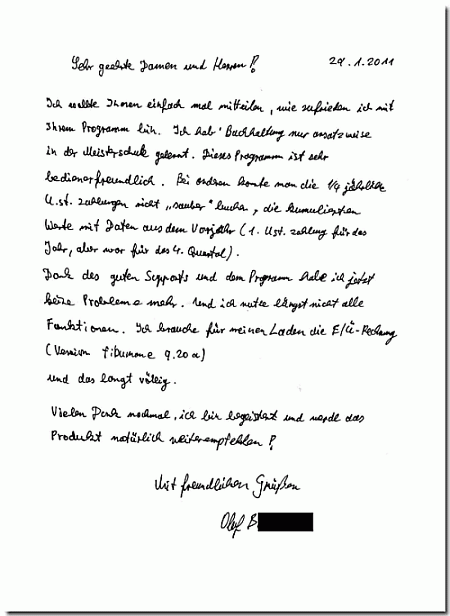 Sehr geehrte Damen und Herren!
29.1.2011
Ich wollte Ihnen einfach mal mitteilen, wie zufrieden ich mit
Ihrem Programm bin. Ich hab' Buchhaltung nur ansatzweise
in der Meisterschule gelernt. Dieses Programm ist sehr
bedienerfreundlich. Bei anderen konnte man die 1/4 jährliche
U.st. zahlungen nicht „sauber" buchen, die kumulierten
Werte mit Daten aus dem Vorjahr (1. Ust. zahlung für das
Jahr, aber war für das 4. Quartal).
Dank des guten Supports und dem Programm habe ich jetzt
keine Probleme mehr. Und ich nutze längst nicht alle
Funktionen. Ich brauche für meinen Laden die E/Ü-Rechnung
(Version fibumone 9.20a)
und das langt völlig.
Vielen Dank nochmal, ich bin begeistert und werde das
Produkt natürlich weiterempfehlen!
Mit freundlichen Grüßen
Olaf B.